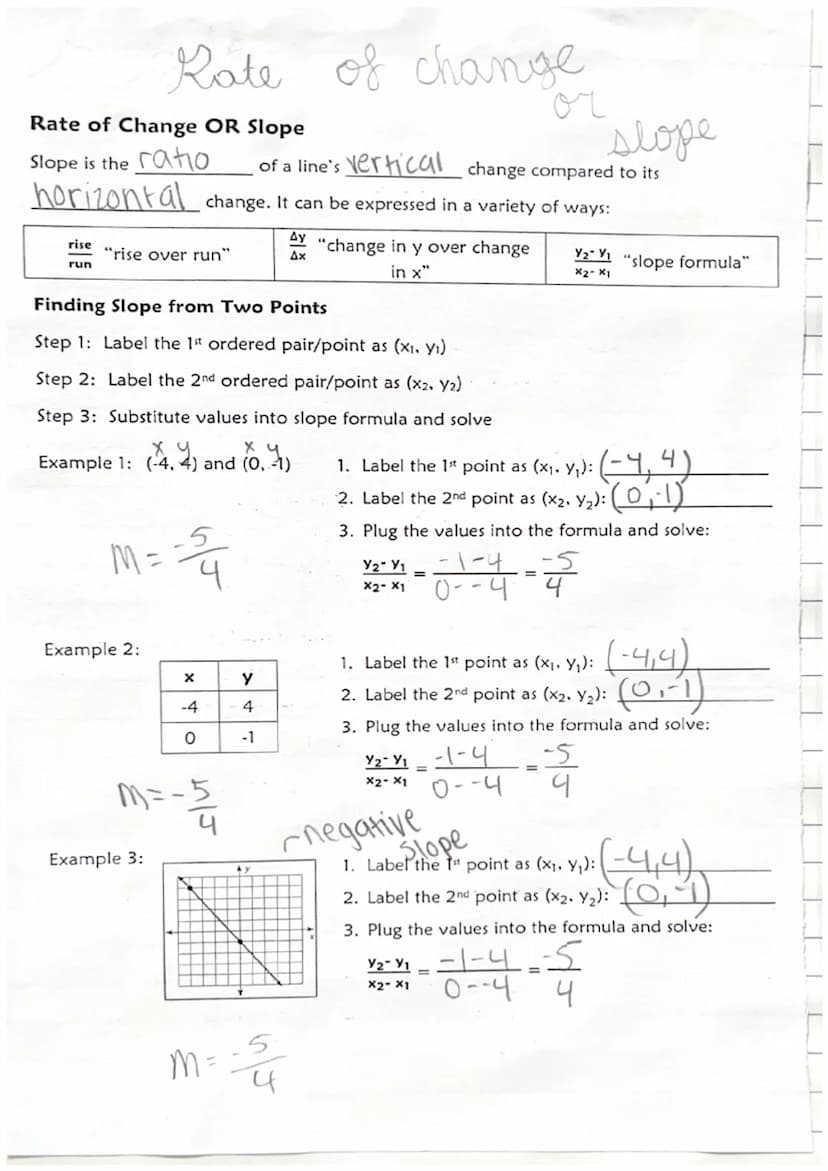 Rate of change
or
slope
Rate of Change OR Slope
Slope is the ratio of a line's vertical change compared to its
horizontal change. It can be expressed in a variety of ways:
rise/run "rise over run"
Δy/Δx "change in y over change
in x"
y₂- y₁/x₂- x₁ "slope formula"
Finding Slope from Two Points
Step 1: Label the 1st ordered pair/point as (x₁, y₁)
Step 2: Label the 2nd ordered pair/point as (x₂, y₂)
Step 3: Substitute values into slope formula and solve
x y x y
Example 1: (-4, 4) and (0, -1)
1. Label the 1st point as (x₁, y₁): (-4, 4)
2. Label the 2nd point as (x₂, y₂): (0, -1)
3. Plug the values into the formula and solve:
y₂- y₁/x₂- x₁ = -1-4/0--4 = -5/4
m = -5/4
Example 2:
x y
-4 4
0 -1
1. Label the 1st point as (x₁, y₁): (-4,4)
2. Label the 2nd point as (x₂, y₂): (0,-1)
3. Plug the values into the formula and solve:
y₂- y₁/x₂- x₁ = -1-4/0--4 = -5/4
m = -5/4
-negative
slope
Example 3:
y
x
1. Label the 1st point as (x₁, y₁): (-4,4)
2. Label the 2nd point as (x₂, y₂): (0,-1)
3. Plug the values into the formula and solve:
y₂- y₁/x₂- x₁ = -1-4/0--4 = -5/4
m = -5/4